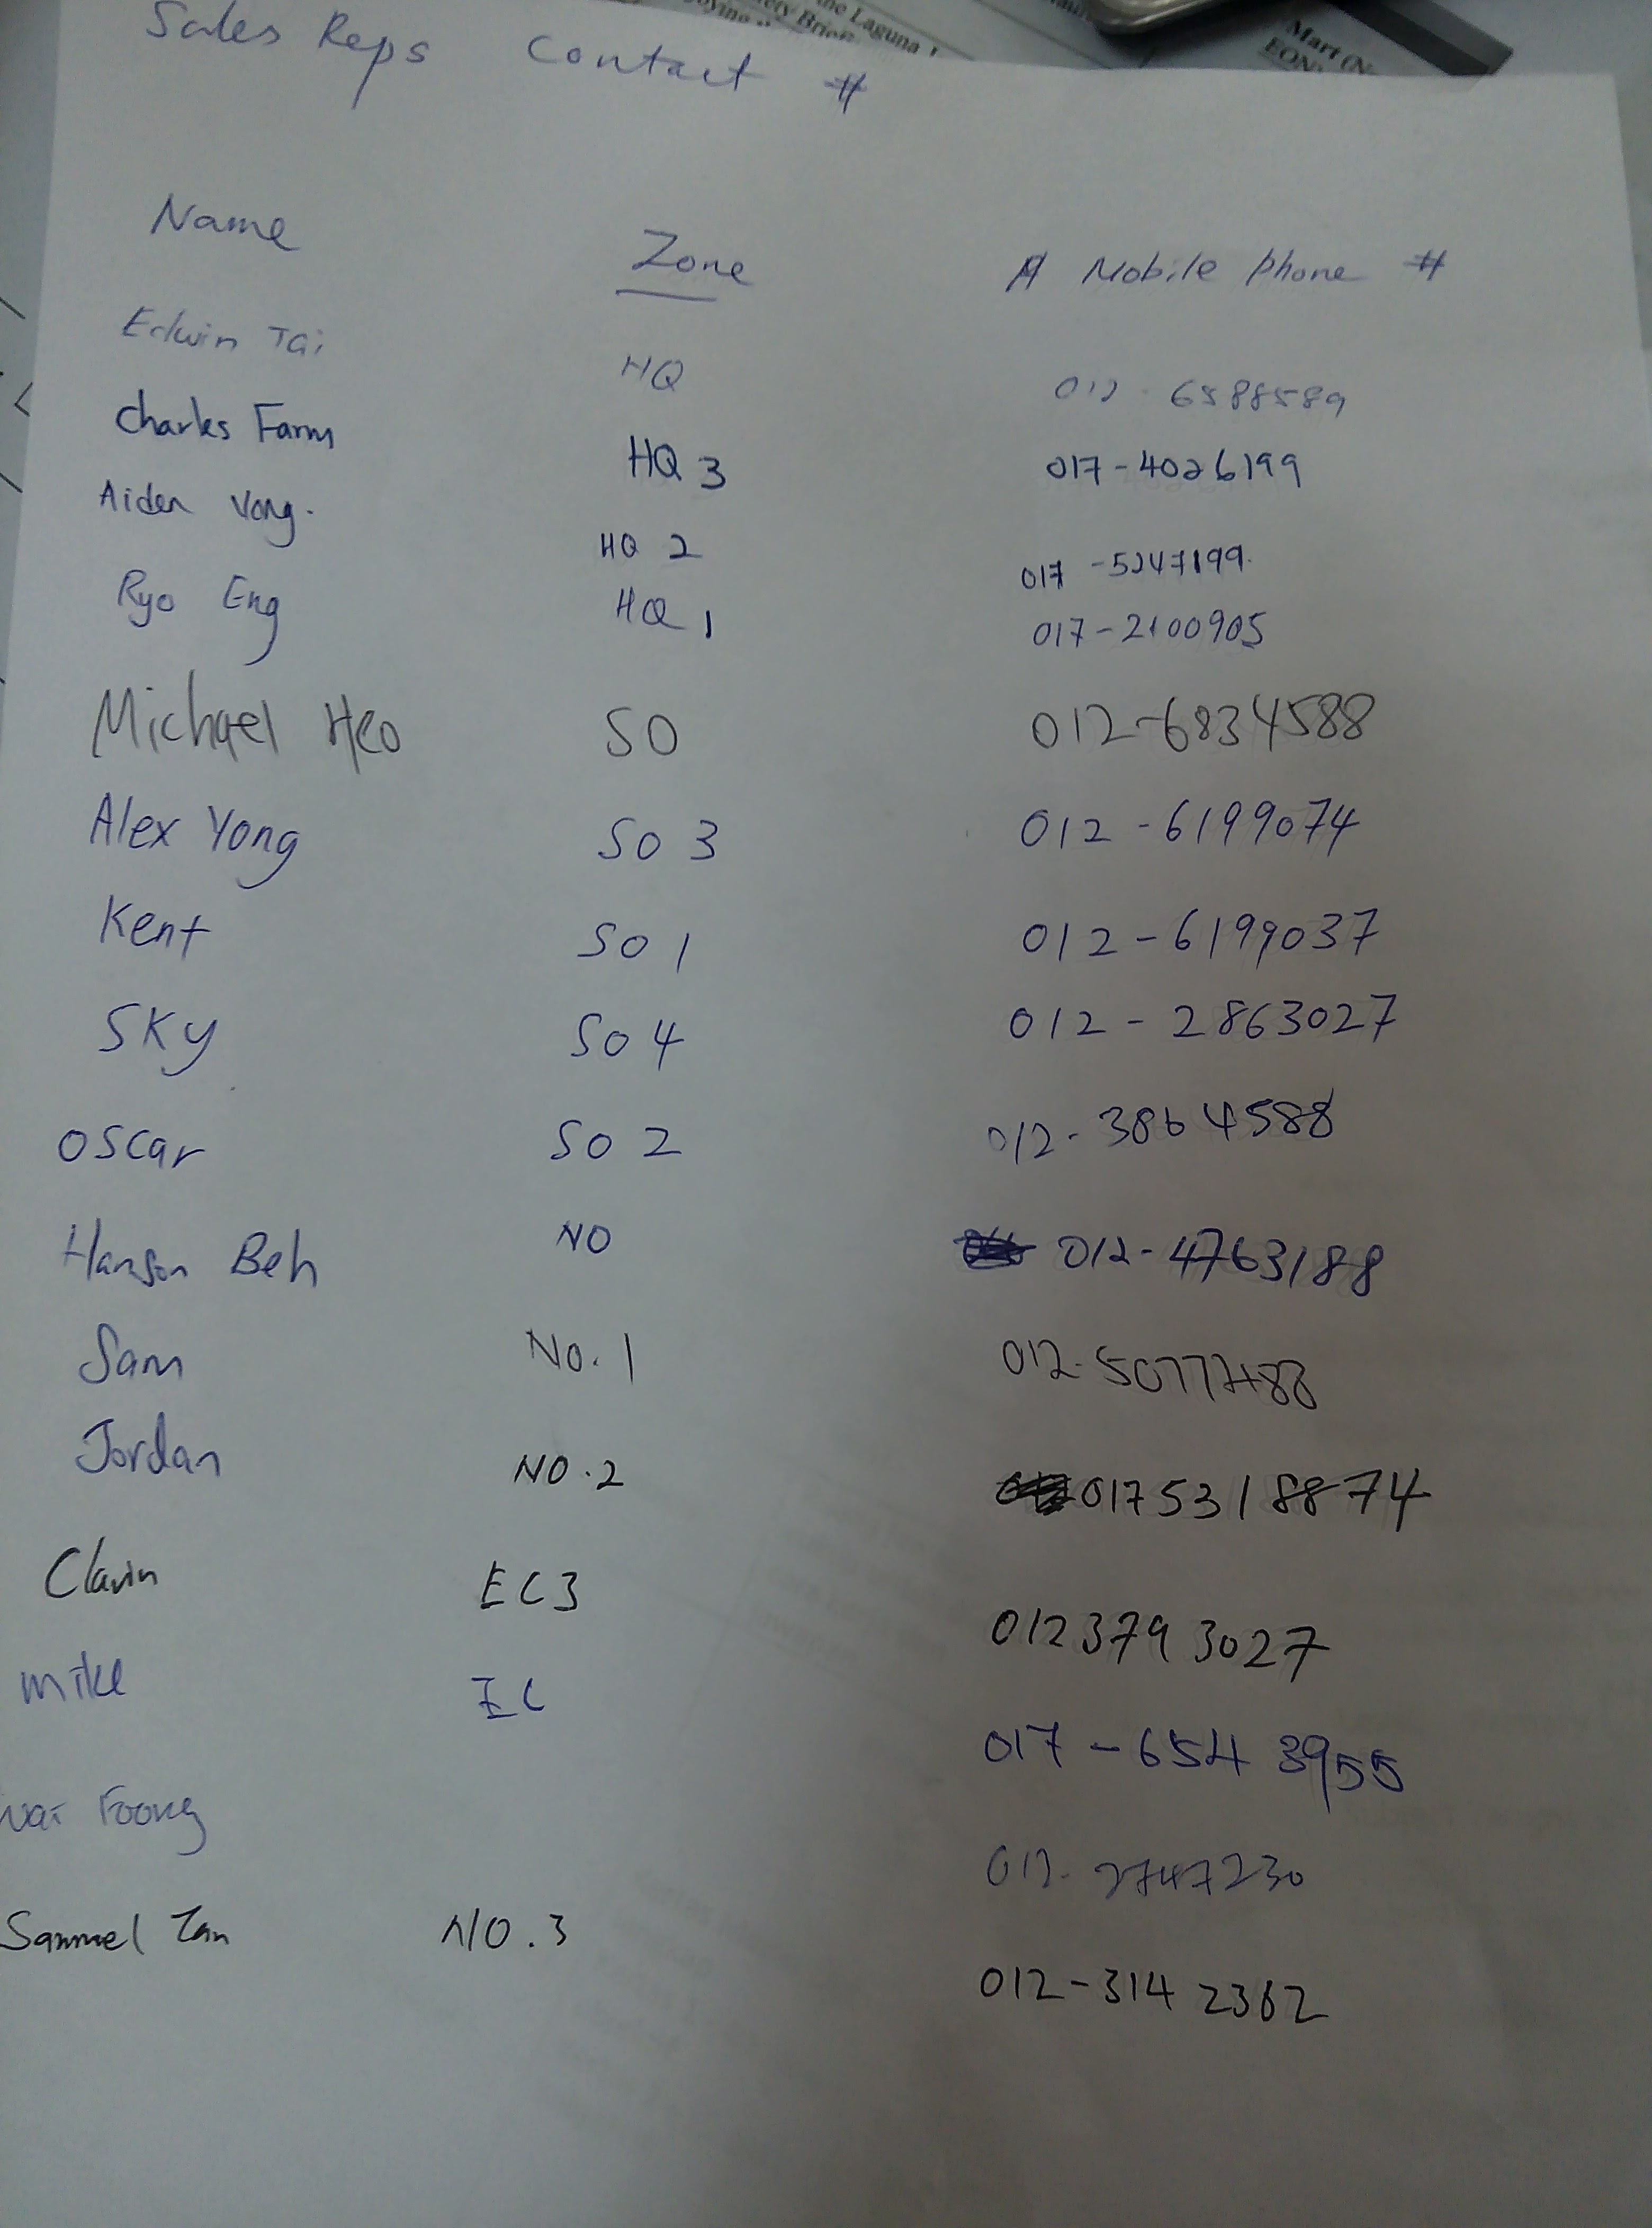 the Laguna
Mart (N
ety Brief
oying
EON
Sales Reps Contact #
Name Zone Mobile Phone #
Edwin Tai HQ 012-6588589
Charles Farm HQ 3 017-4026199
Aiden Vong. HQ 2 017-5247199.
Ryo Eng HQ 1 017-2100905
Michael Heo SO 012-6834588
Alex Yong SO 3 012-6199074
Kent SO 1 012-6199037
SKY SO 4 012-2863027
OSCar SO 2 012-3864588
Hanson Beh NO 012-4763188
Sam No.1 012-5077488
Jordan NO.2 0175318874
Clavin EC3 0123793027
mike EC 017-654 3955
wai Foong 012-2747230
Sammel Tan NO.3 012-314 2362